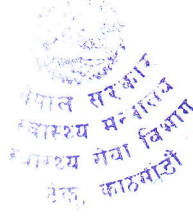 नेपाल सरकार
स्वास्थ्य मन्त्रालय
स्वास्थ्य सेवा विभाग
टेकु, काठमाडौं